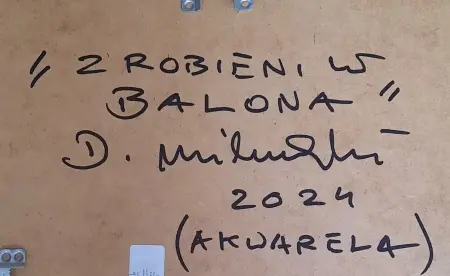 „ZROBIENI W
BALONA”
D.
2024
(AKWARELA)